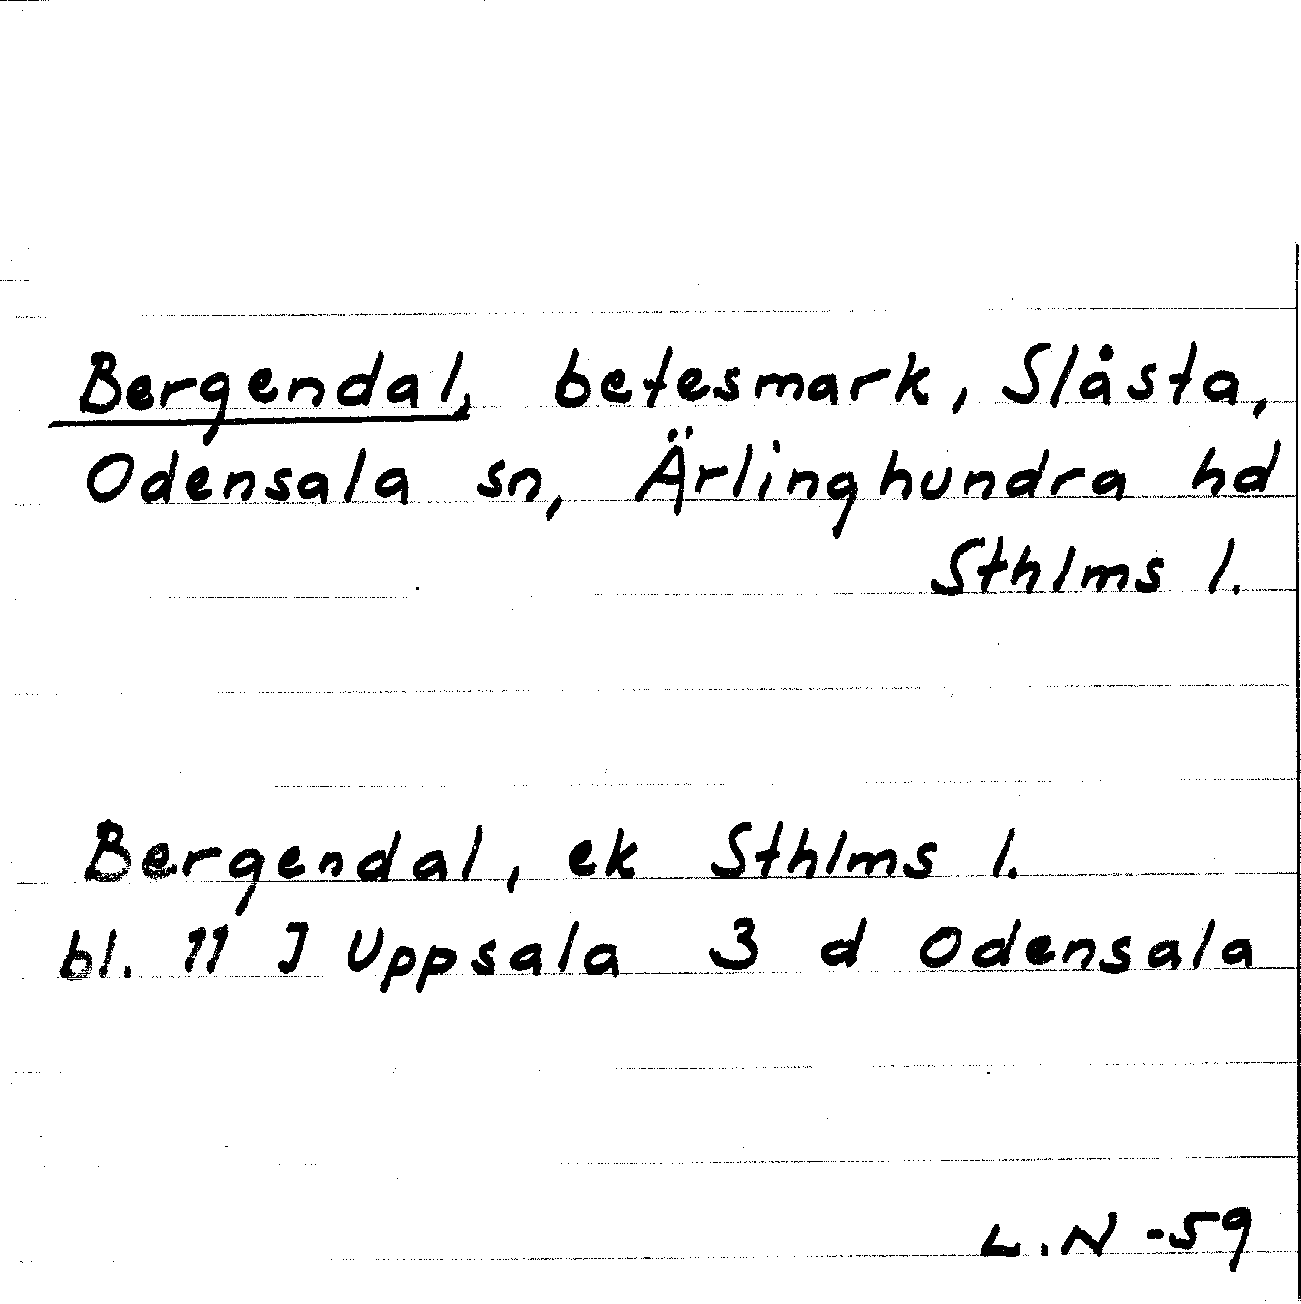 Bergendal, betesmark, Slåsta,
Odensala sn, Ärlinghundra hd
Sthlms l.
Bergendal, ek Sthlms l.
bl. 11 J Uppsala 3 d Odensala
L.N -59